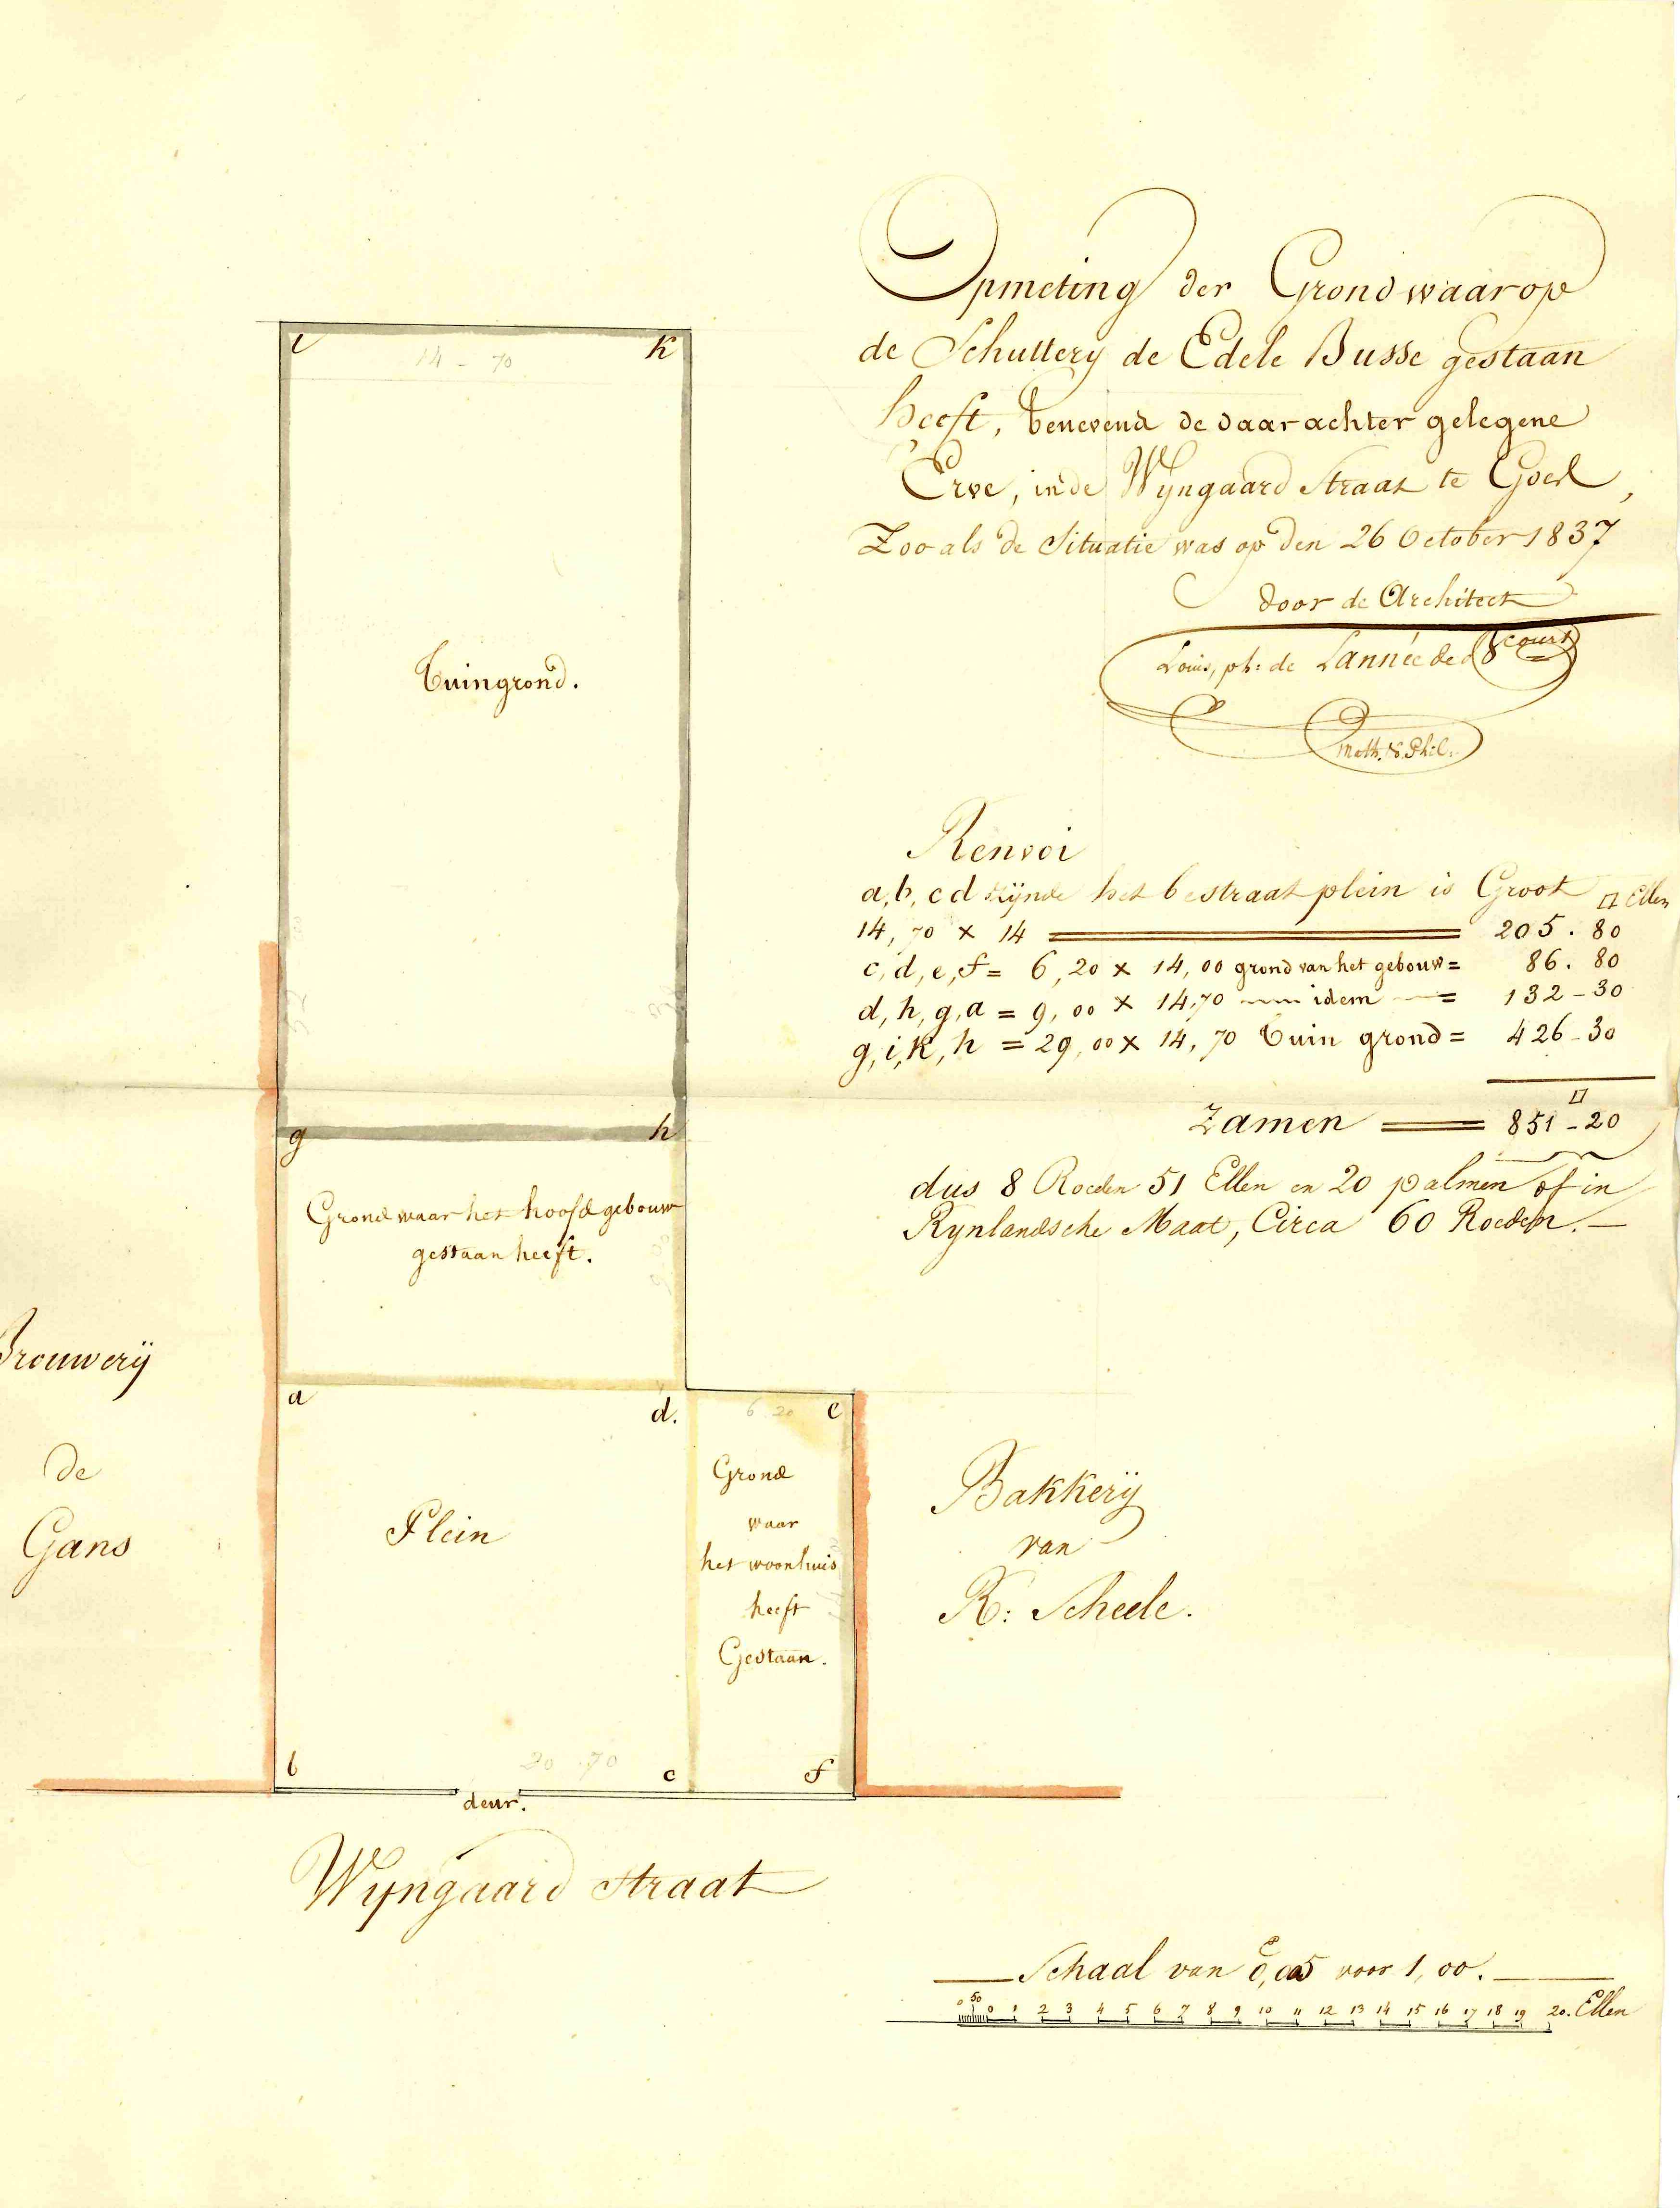 Opmeting der Grond waarop
de Schuttery de Edele Busse gestaan
heeft, benevend de daar achter gelegene
Erve, in de Wyngaard Straat te Goes,
Zoo als de Situatie was op den 26 October 1837
door de Architect
Louis, ph: de Lannée de
Math. & Phil.
Renvoi
a, b, c d zijnde het bestraat plein is Groot □ Ellen
14, 70 × 14 = 205. 80
c, d, e, f = 6, 20 × 14, 00 grond van het gebouw = 86. 80
d, h, g, a = 9, 00 × 14,70 idem = 132 - 30
g, i, k, h = 29, 00 × 14, 70 Tuin grond = 426 - 30
□
Zamen = 851 - 20
dus 8 Roeden 51 Ellen en 20 palmen of in
Rynlandsche Maat, Circa 60 Roeden. —
i
14 - 70
k
Tuingrond.
g
h
Grond waar het hoofd gebouw
gestaan heeft.
Brouwerij
de
Gans
a
d.
6 20
e
Plein
Grond
waar
het woonhuis
heeft
Gestaan.
Bakkerij
van
K: Scheele.
b
20 70
c
f
deur.
Wyngaard Straat
Schaal van 0,005 voor 1, 00.
0 50 0 1 2 3 4 5 6 7 8 9 10 11 12 13 14 15 16 17 18 19 20. Ellen